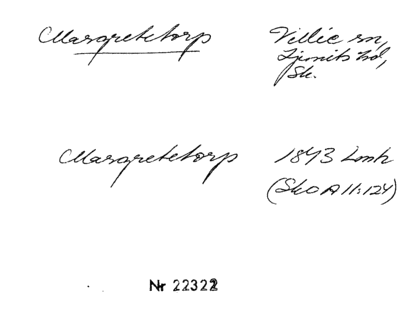 Margretetorp Villie sn,
Ljunits hd,
Sk.
Margretetorp 1843 Lmk
(SkO A II:124)
Nr 22322